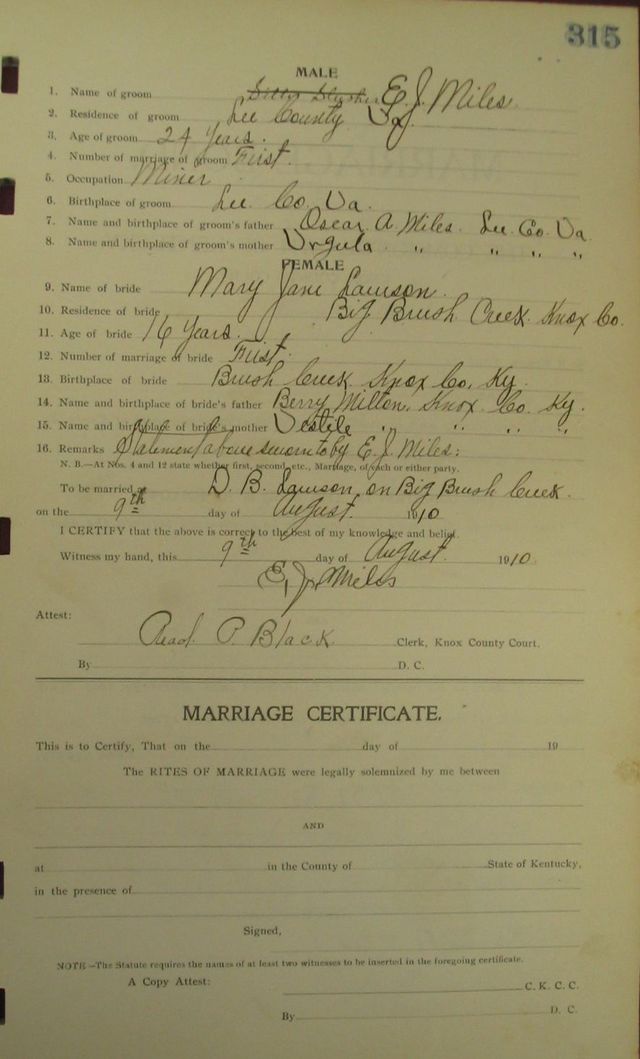 315
MALE
1. Name of groom E. J. Miles
2. Residence of groom Lee County Va
3. Age of groom 24 Years.
4. Number of marriage of groom First.
5. Occupation Miner
6. Birthplace of groom Lee. Co. Va.
7. Name and birthplace of groom's father Oscar A. Miles. Lee. Co. Va
8. Name and birthplace of groom's mother Ursula " " " "
FEMALE
9. Name of bride Mary Jane Lawson.
10. Residence of bride Big Brush Creek. Knox Co.
11. Age of bride 16 Years.
12. Number of marriage of bride First.
13. Birthplace of bride Brush Creek Knox Co, Ky.
14. Name and birthplace of bride's father Berry Milton, Knox Co. Ky.
15. Name and birthplace of bride's mother " " " "
16. Remarks Statement above sworn to by E. J. Miles:
N. B.—At Nos. 4 and 12 state whether first, second, etc., Marriage, of each or either party.
To be married at D. B. Lawson, on Big Brush Creek.
on the 9th day of August. 1910
I CERTIFY that the above is correct to the best of my knowledge and belief.
Witness my hand, this 9th day of August. 1910.
E. J. Miles
Attest:
Read P. Black Clerk, Knox County Court.
By D. C.
MARRIAGE CERTIFICATE.
This is to Certify, That on the day of 19
The RITES OF MARRIAGE were legally solemnized by me between
AND
at in the County of State of Kentucky,
in the presence of
Signed,
NOTE—The Statute requires the names of at least two witnesses to be inserted in the foregoing certificate.
A Copy Attest: C. K. C. C.
By D. C.